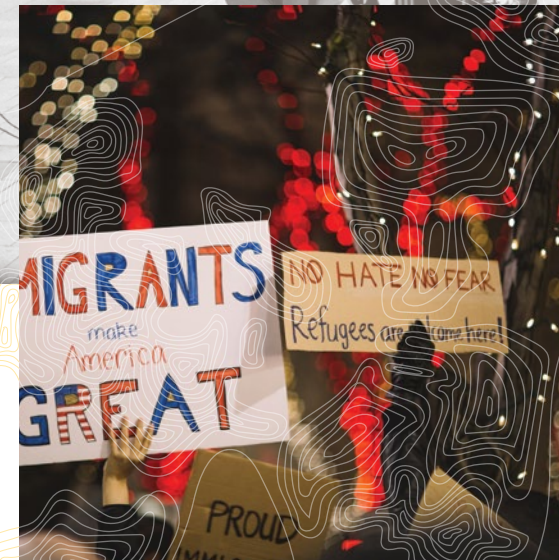 MIGRANTS
make
America
GREAT
NO HATE NO FEAR
Refugees are welcome here!
PROUD